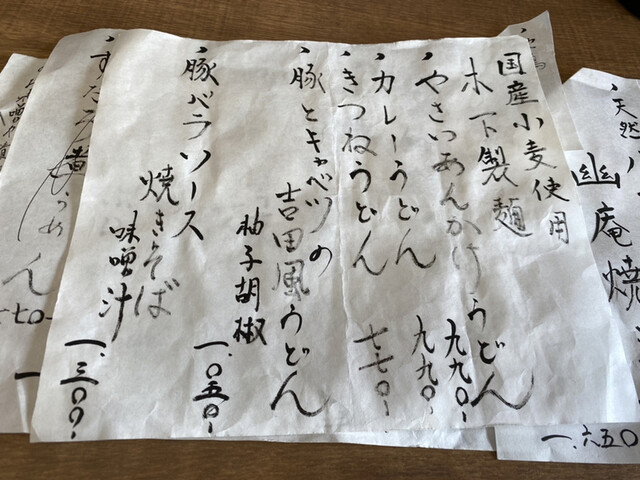 国産小麦使用
木下製麺
・やさいあんかけうどん 九九〇-
・カレーうどん 九九〇-
・きつねうどん 七七〇-
・豚とキャベツの
吉田風うどん
柚子胡椒 一、〇五〇-
・豚バラソース
焼きそば
味噌汁 一、三〇〇-
・天然
幽庵焼
一、六五〇